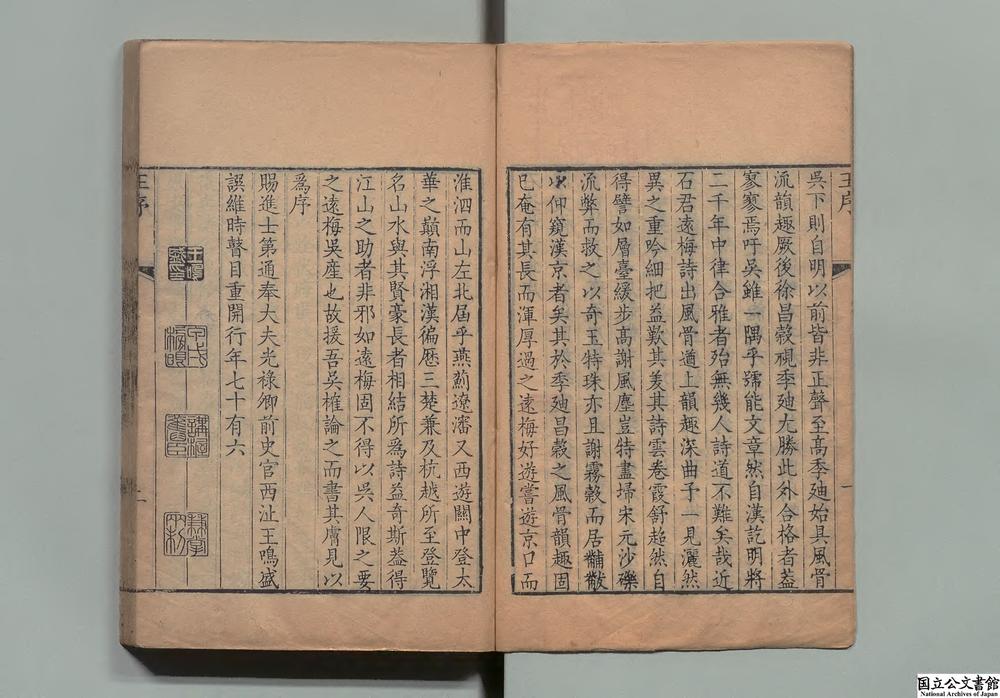 王序
吳下則自明以前皆非正聲至高季廸始具風骨
流韻趣厥後徐昌穀視季廸尤勝此外合格者葢
寥寥焉吁吳雖一隅乎號能文章然自漢訖明將
二千年中律合雅者殆無幾人詩道不難矣哉近
石君遠梅詩出風骨道上韻趣深曲子一見灑然
異之重吟細把益歎其羙其詩雲卷霞舒超然自
得譬如層臺緩步高謝風塵豈特盡埽宋元沙礫
流弊而救之以奇玉特珠亦且謝霧縠而居黼黻
仲窺漢京者矣其於季廸昌榖之風骨韻趣固
已奄有其長而渾厚過之遠梅好遊嘗遊京口而
一
淮泗而山左北屆乎燕薊遼瀋又西遊關中登太
華之巔南浮湘漢徧歷三楚兼及杭越所至登覽
名山水與其賢豪長者相結所爲詩益奇斯益得
江山之助者非邪如遠梅固不得以吳人限之要
之遠梅吳産也故援吾吳榷論之而書其膚見以
爲序
賜進士第通奉大夫光祿卿前史官西沚王鳴盛
譔維時瞽目重開行年七十有六
王序
二
国立公文書館
National Archives of Japan